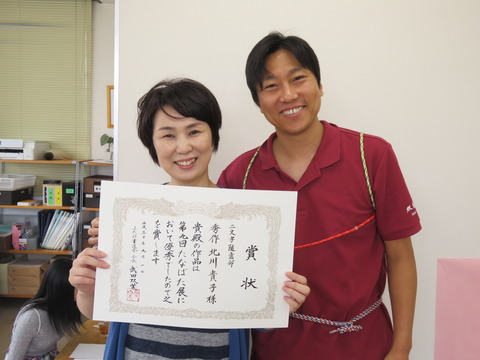 賞状
二文字随意部
秀作 北川貴子様
貴殿の作品は
第九回たなばた展に
おいて優秀でしたので之
を賞します
平成三十年九月一日
武田双葉